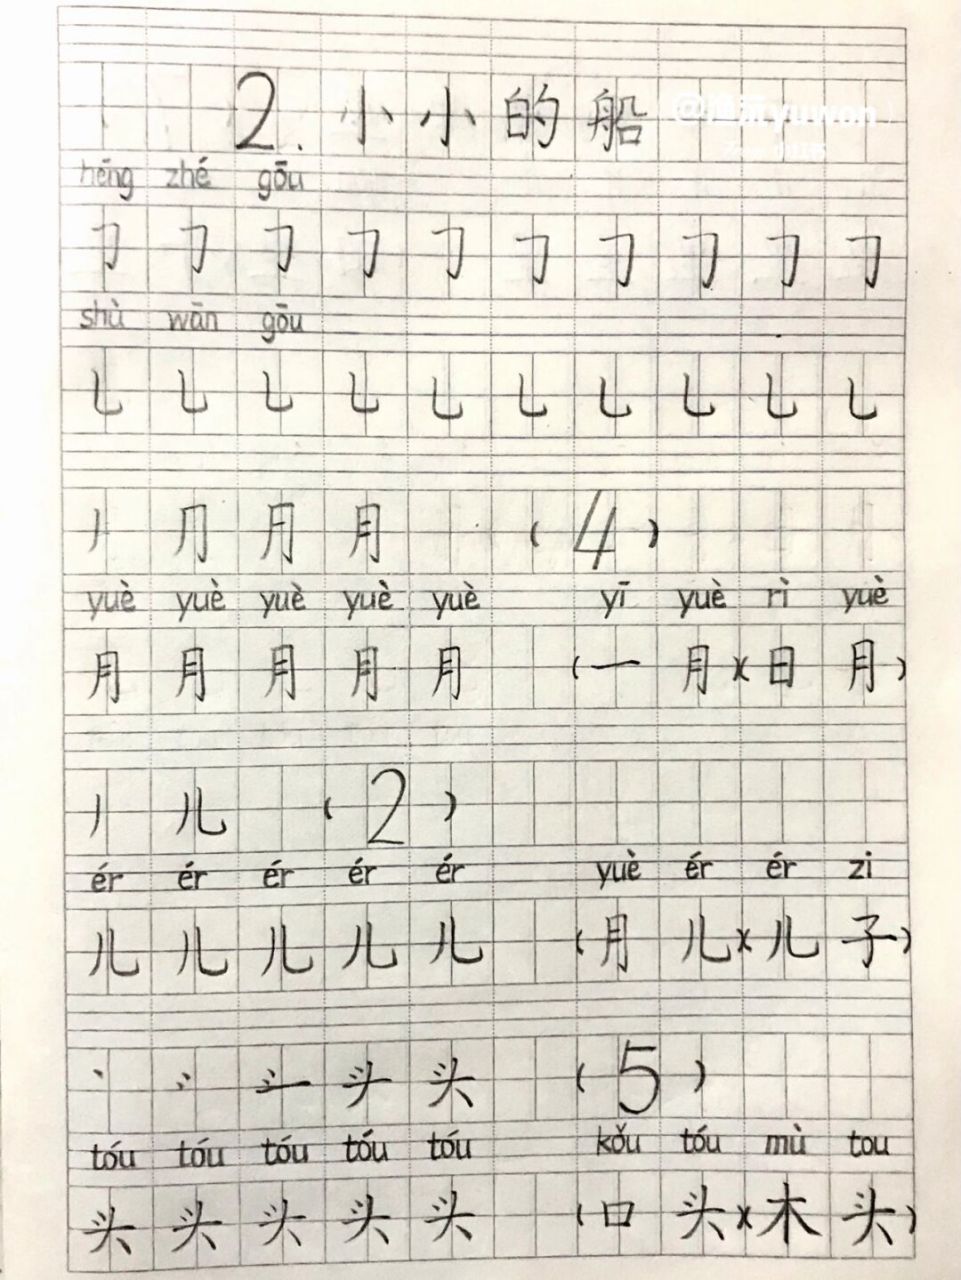 2. 小小的船
héng zhé gōu
𠃌 𠃌 𠃌 𠃌 𠃌 𠃌 𠃌 𠃌 𠃌 𠃌
shù wān gōu
乚 乚 乚 乚 乚 乚 乚 乚 乚 乚
丿 ⺆ 月 (4)
yuè yuè yuè yuè yuè yī yuè rì yuè
月 月 月 月 月 (一月)(日月)
丿 儿 (2)
ér ér ér ér ér yuè ér ér zi
儿 儿 儿 儿 儿 (月儿)(儿子)
丶 头 (5)
tóu tóu tóu tóu tóu kǒu tóu mù tou
头 头 头 头 头 (口头)(木头)